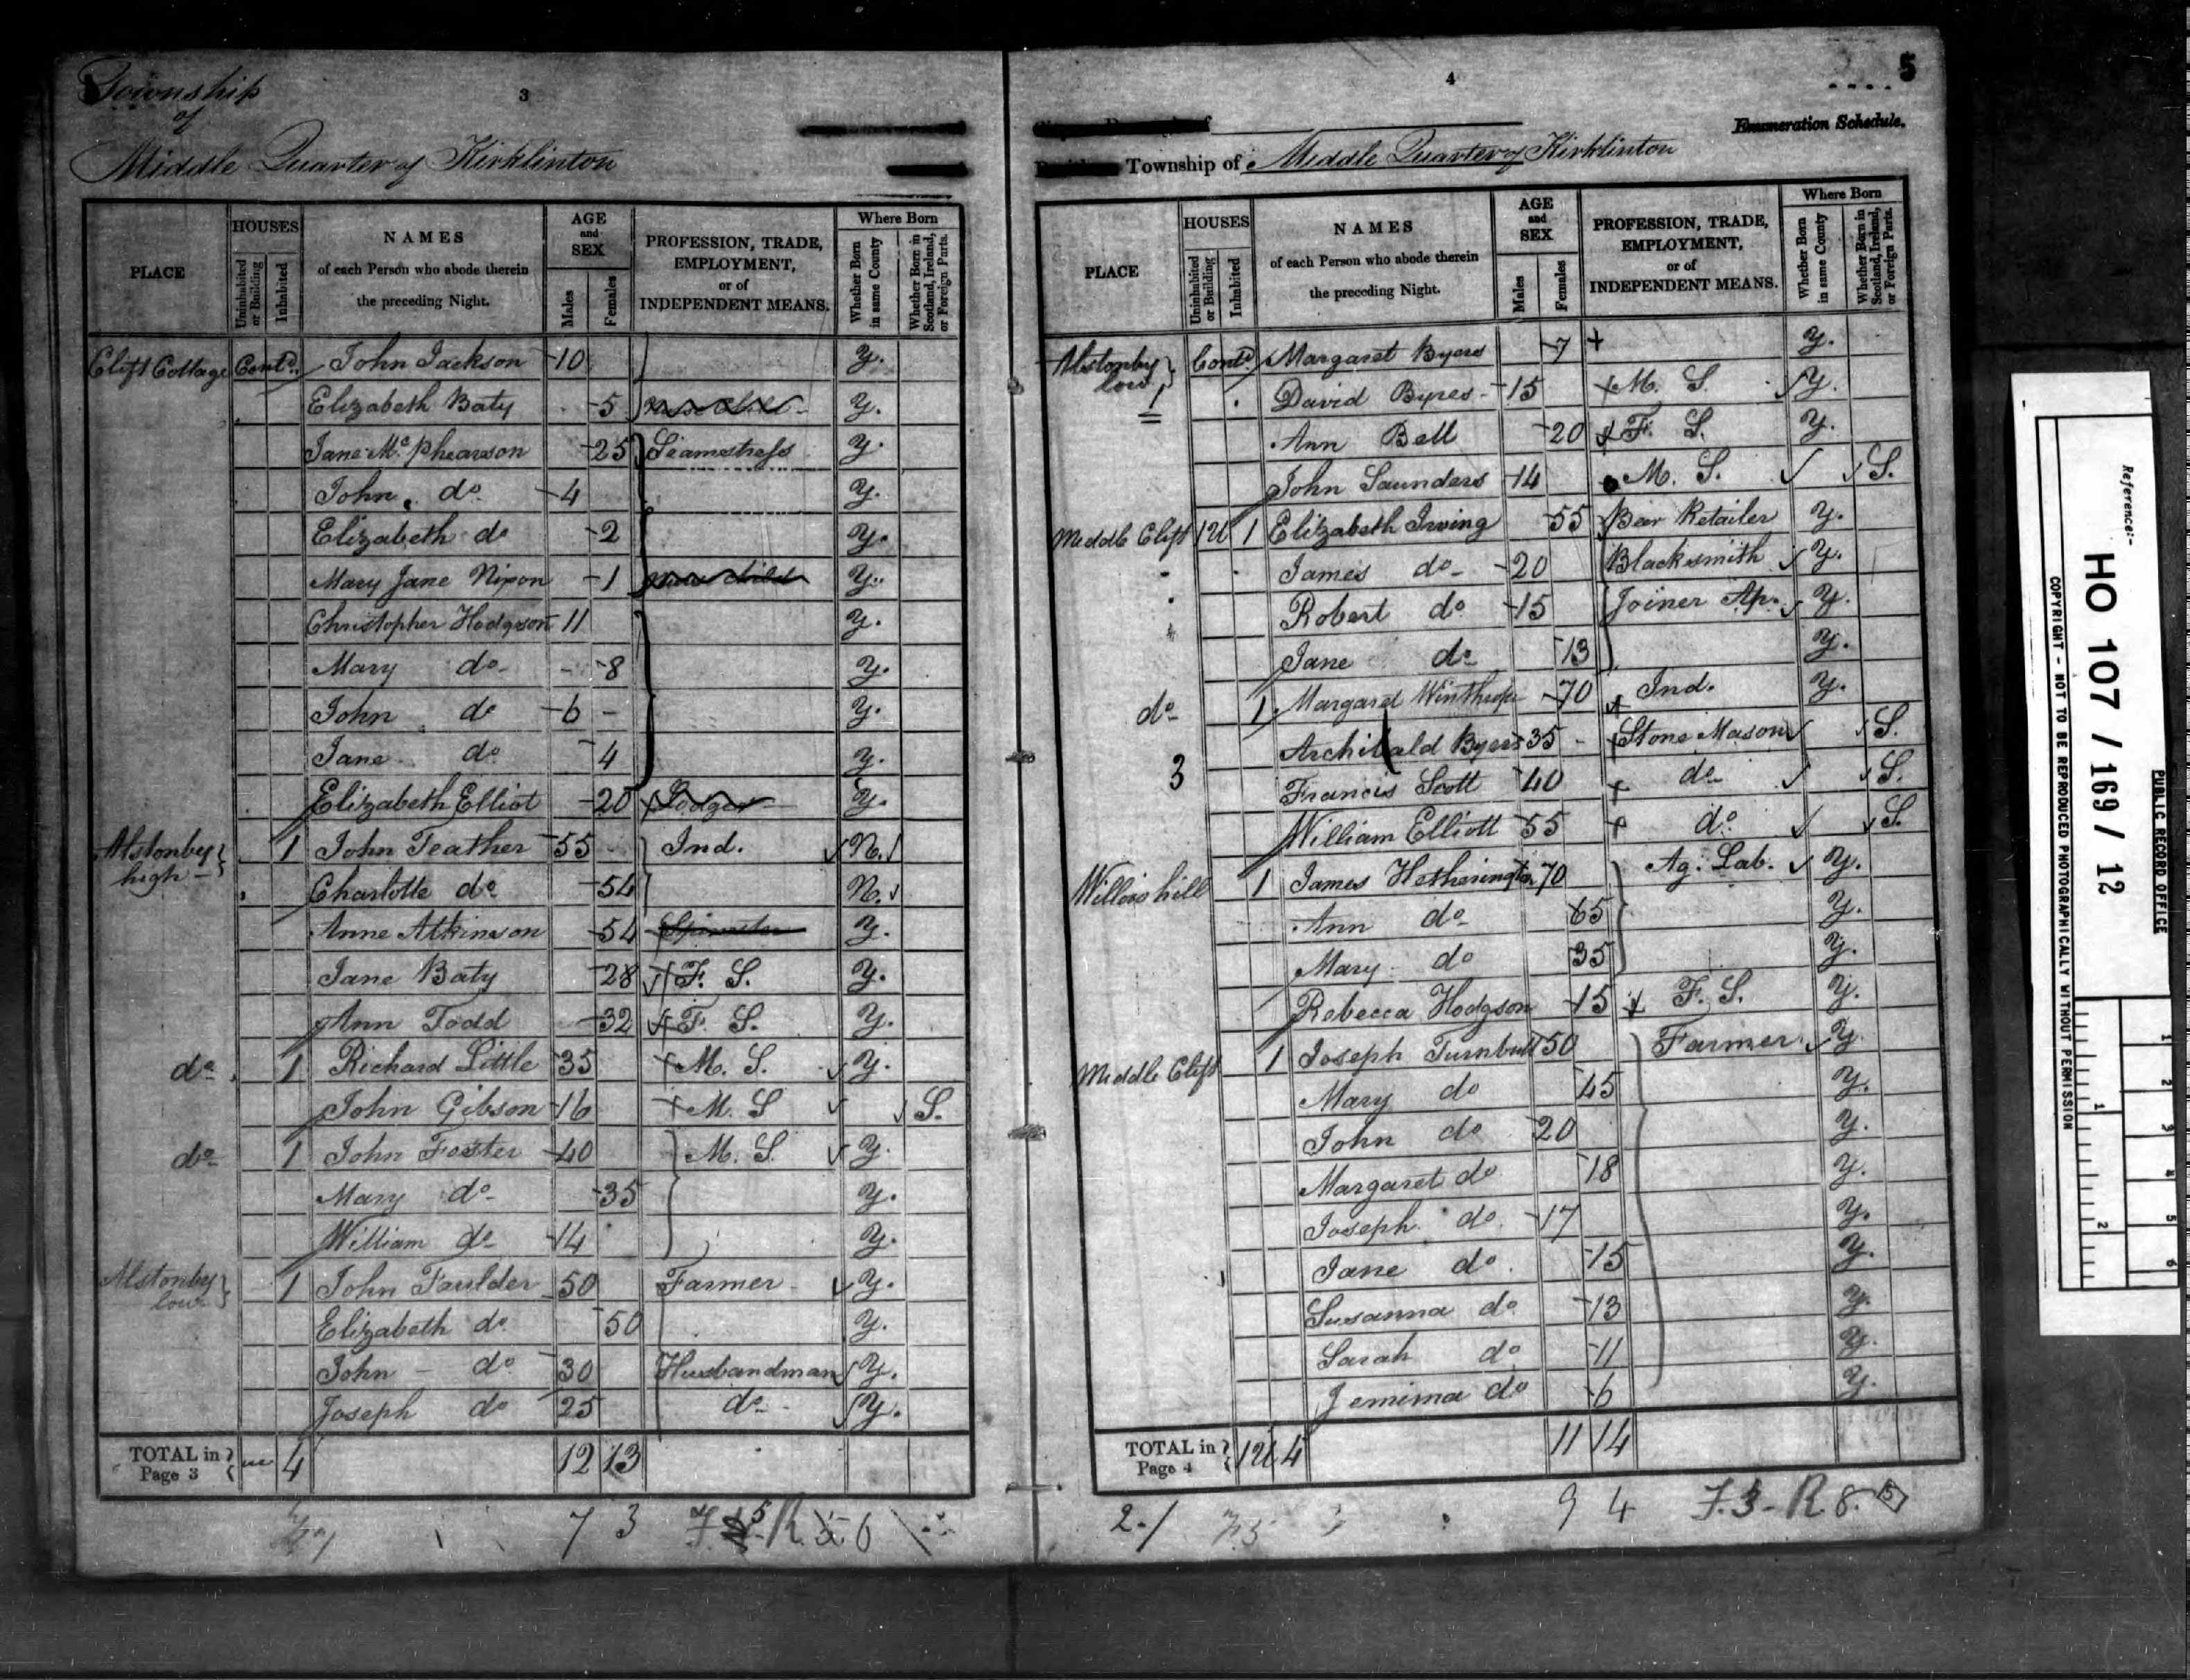 Township
of
Middle Quarter of Kirklinton
3
PLACE
HOUSES
Uninhabited or Building
Inhabited
NAMES
of each Person who abode therein
the preceding Night.
AGE
and
SEX
Males
Females
PROFESSION, TRADE,
EMPLOYMENT,
or of
INDEPENDENT MEANS.
Where Born
Whether Born in same County
Whether Born in Scotland, Ireland, or Foreign Parts.
Clift Cottage Contd. John Jackson 10 Y.
Elizabeth Baty 5 Y.
Jane Mc.Phearson 25 Seamstress Y.
John do 4 Y.
Elizabeth do 2 Y.
Mary Jane Nixon 1 Nurse child Y.
Christopher Hodgson 11 Y.
Mary do 8 Y.
John do 6 Y.
Jane do 4 Y.
Elizabeth Elliot 20 Lodger Y.
Alstonby high 1 John Teather 55 Ind. N.
Charlotte do 54 N.
Anne Atkinson 54 Spinster Y.
Jane Baty 28 F. S. Y.
Ann Todd 32 F. S. Y.
do 1 Richard Little 35 M. S. Y.
John Gibson 16 M. S S.
do 1 John Foster 40 M. S. Y.
Mary do 35 Y.
William do 14 Y.
Alstonby low 1 John Faulder 50 Farmer Y.
Elizabeth do 50 Y.
John do 30 Husbandman Y.
Joseph do 25 do Y.
TOTAL in Page 3 4 12 13
7 3
4
5
Enumeration Schedule.
Township of Middle Quarter of Kirklinton
PLACE
HOUSES
Uninhabited or Building
Inhabited
NAMES
of each Person who abode therein
the preceding Night.
AGE
and
SEX
Males
Females
PROFESSION, TRADE,
EMPLOYMENT,
or of
INDEPENDENT MEANS.
Where Born
Whether Born in same County
Whether Born in Scotland, Ireland, or Foreign Parts.
Alstonby low Contd Margaret Byers 7 Y.
David Byres 15 M. S. Y.
Ann Bell 20 F. S. Y.
John Saunders 14 M. S. S.
Middle Clift 1U 1 Elizabeth Irving 55 Beer Retailer Y.
James do 20 Blacksmith Y.
Robert do 15 Joiner Ap. Y.
Jane do 13 Y.
do 1 Margaret Winthrop 70 Ind. Y.
Archibald Byers 35 Stone Mason S.
3 Francis Scott 40 do S.
William Elliott 55 do S.
Willow hill 1 James Hetherington 70 Ag. Lab. Y.
Ann do 65 Y.
Mary do 35 Y.
Rebecca Hodgson 15 F. S. Y.
Middle Clift 1 Joseph Turnbull 50 Farmer Y.
Mary do 45 Y.
John do 20 Y.
Margaret do 18 Y.
Joseph do 17 Y.
Jane do 15 Y.
Susanna do 13 Y.
Sarah do 11 Y.
Jemima do 6 Y.
TOTAL in Page 4 1U 4 11 14
9 4 F.3-R 8.
Reference:-
HO 107 / 169 / 12
PUBLIC RECORD OFFICE
COPYRIGHT - NOT TO BE REPRODUCED PHOTOGRAPHICALLY WITHOUT PERMISSION
1
2
1
2
3
4
5
6